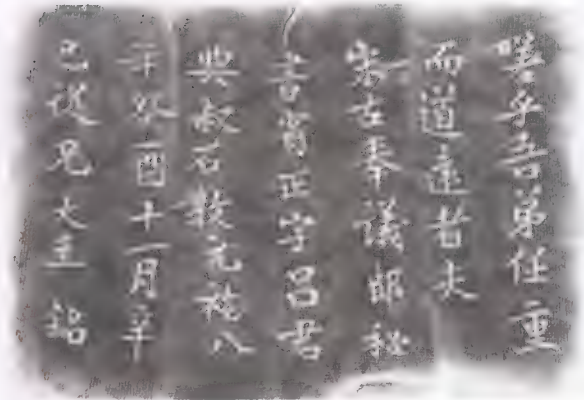 嗟乎吾弟任重
而道遠者夫
宋左奉議郎秘
書省正字呂君
與叔石敦元祐八
年癸酉十一月辛
巳從兄大圭銘